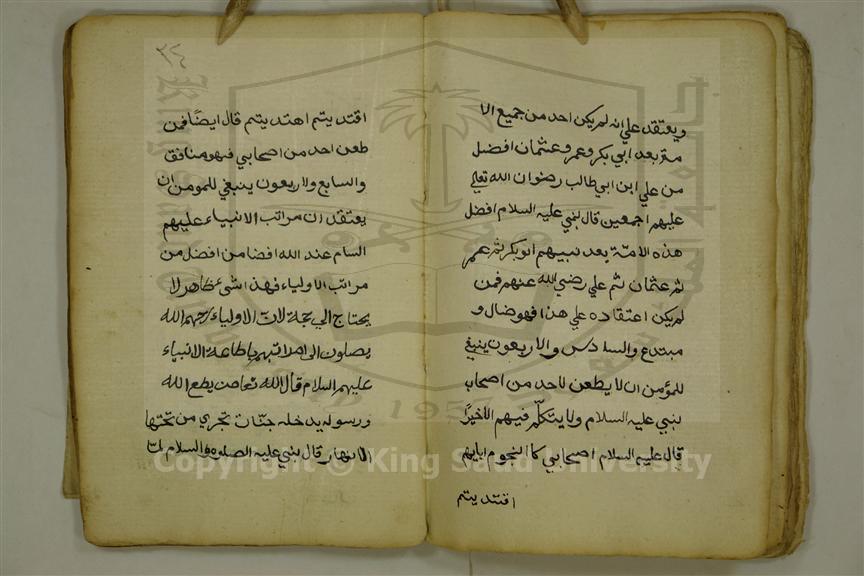 ويعتقد علي انه لم يكن احد من جميع الا
مة بعد ابي بكر وعمر وعثمان افضل
من علي ابن ابي طالب رضوان الله تعلي
عليهم اجمعين قال لنبي عليه السلام افضل
هذه الامة بعد نبيهم ابو بكر ثم عمر
ثم عثمان ثم علي رضي الله عنهم فمن
لم يكن اعتقاده علي هذا فهو ضال و
مبتدع والسادس والاربعون ينبغي
للمؤمن ان لا يطعن لاحد من اصحاب
لنبي عليه السلام ولا يتكلم فيهم الا خيرا
قال عليه السلام اصحابي كا النجوم بايهم
اقتديتم
٣٤
اقتديتم اهتديتم قال ايضا فمن
طعن احد من اصحابي فهو منافق
والسابع ولاربعون ينبغي للمومن ان
يعتقد ان مراتب الانبياء عليهم
السام عند الله افضا من افضل من
مراتب الاولياء فهذا شئ ظاهر لا
يحتاج الي حجة لان الاولياء رحمهم الله
يصلون الى مراتبهم باطاعة الانبياء
عليهم السلام قال الله تعا من يطع الله
ورسوله يدخله جنات تجري من تحتها
الانهار قال بني عليه الصلوة والسلام ان
Copyright © King Saud University
1957